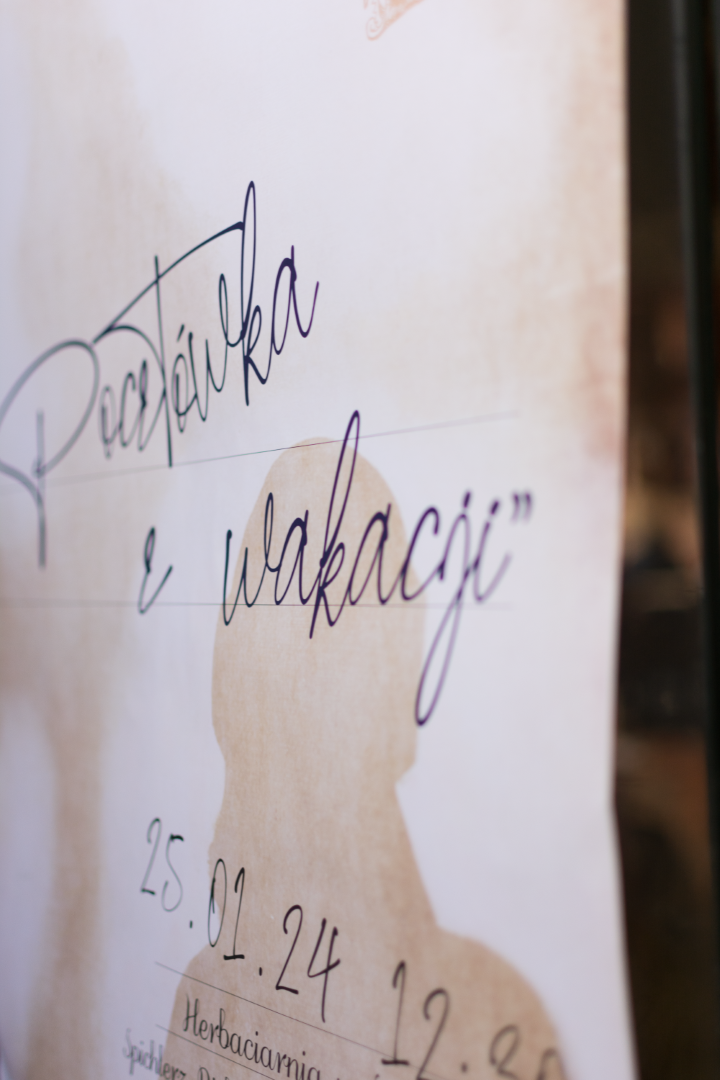 Pocztówka
z wakacji”
25.01.24 12.30
Herbaciarnia
Spichlerz